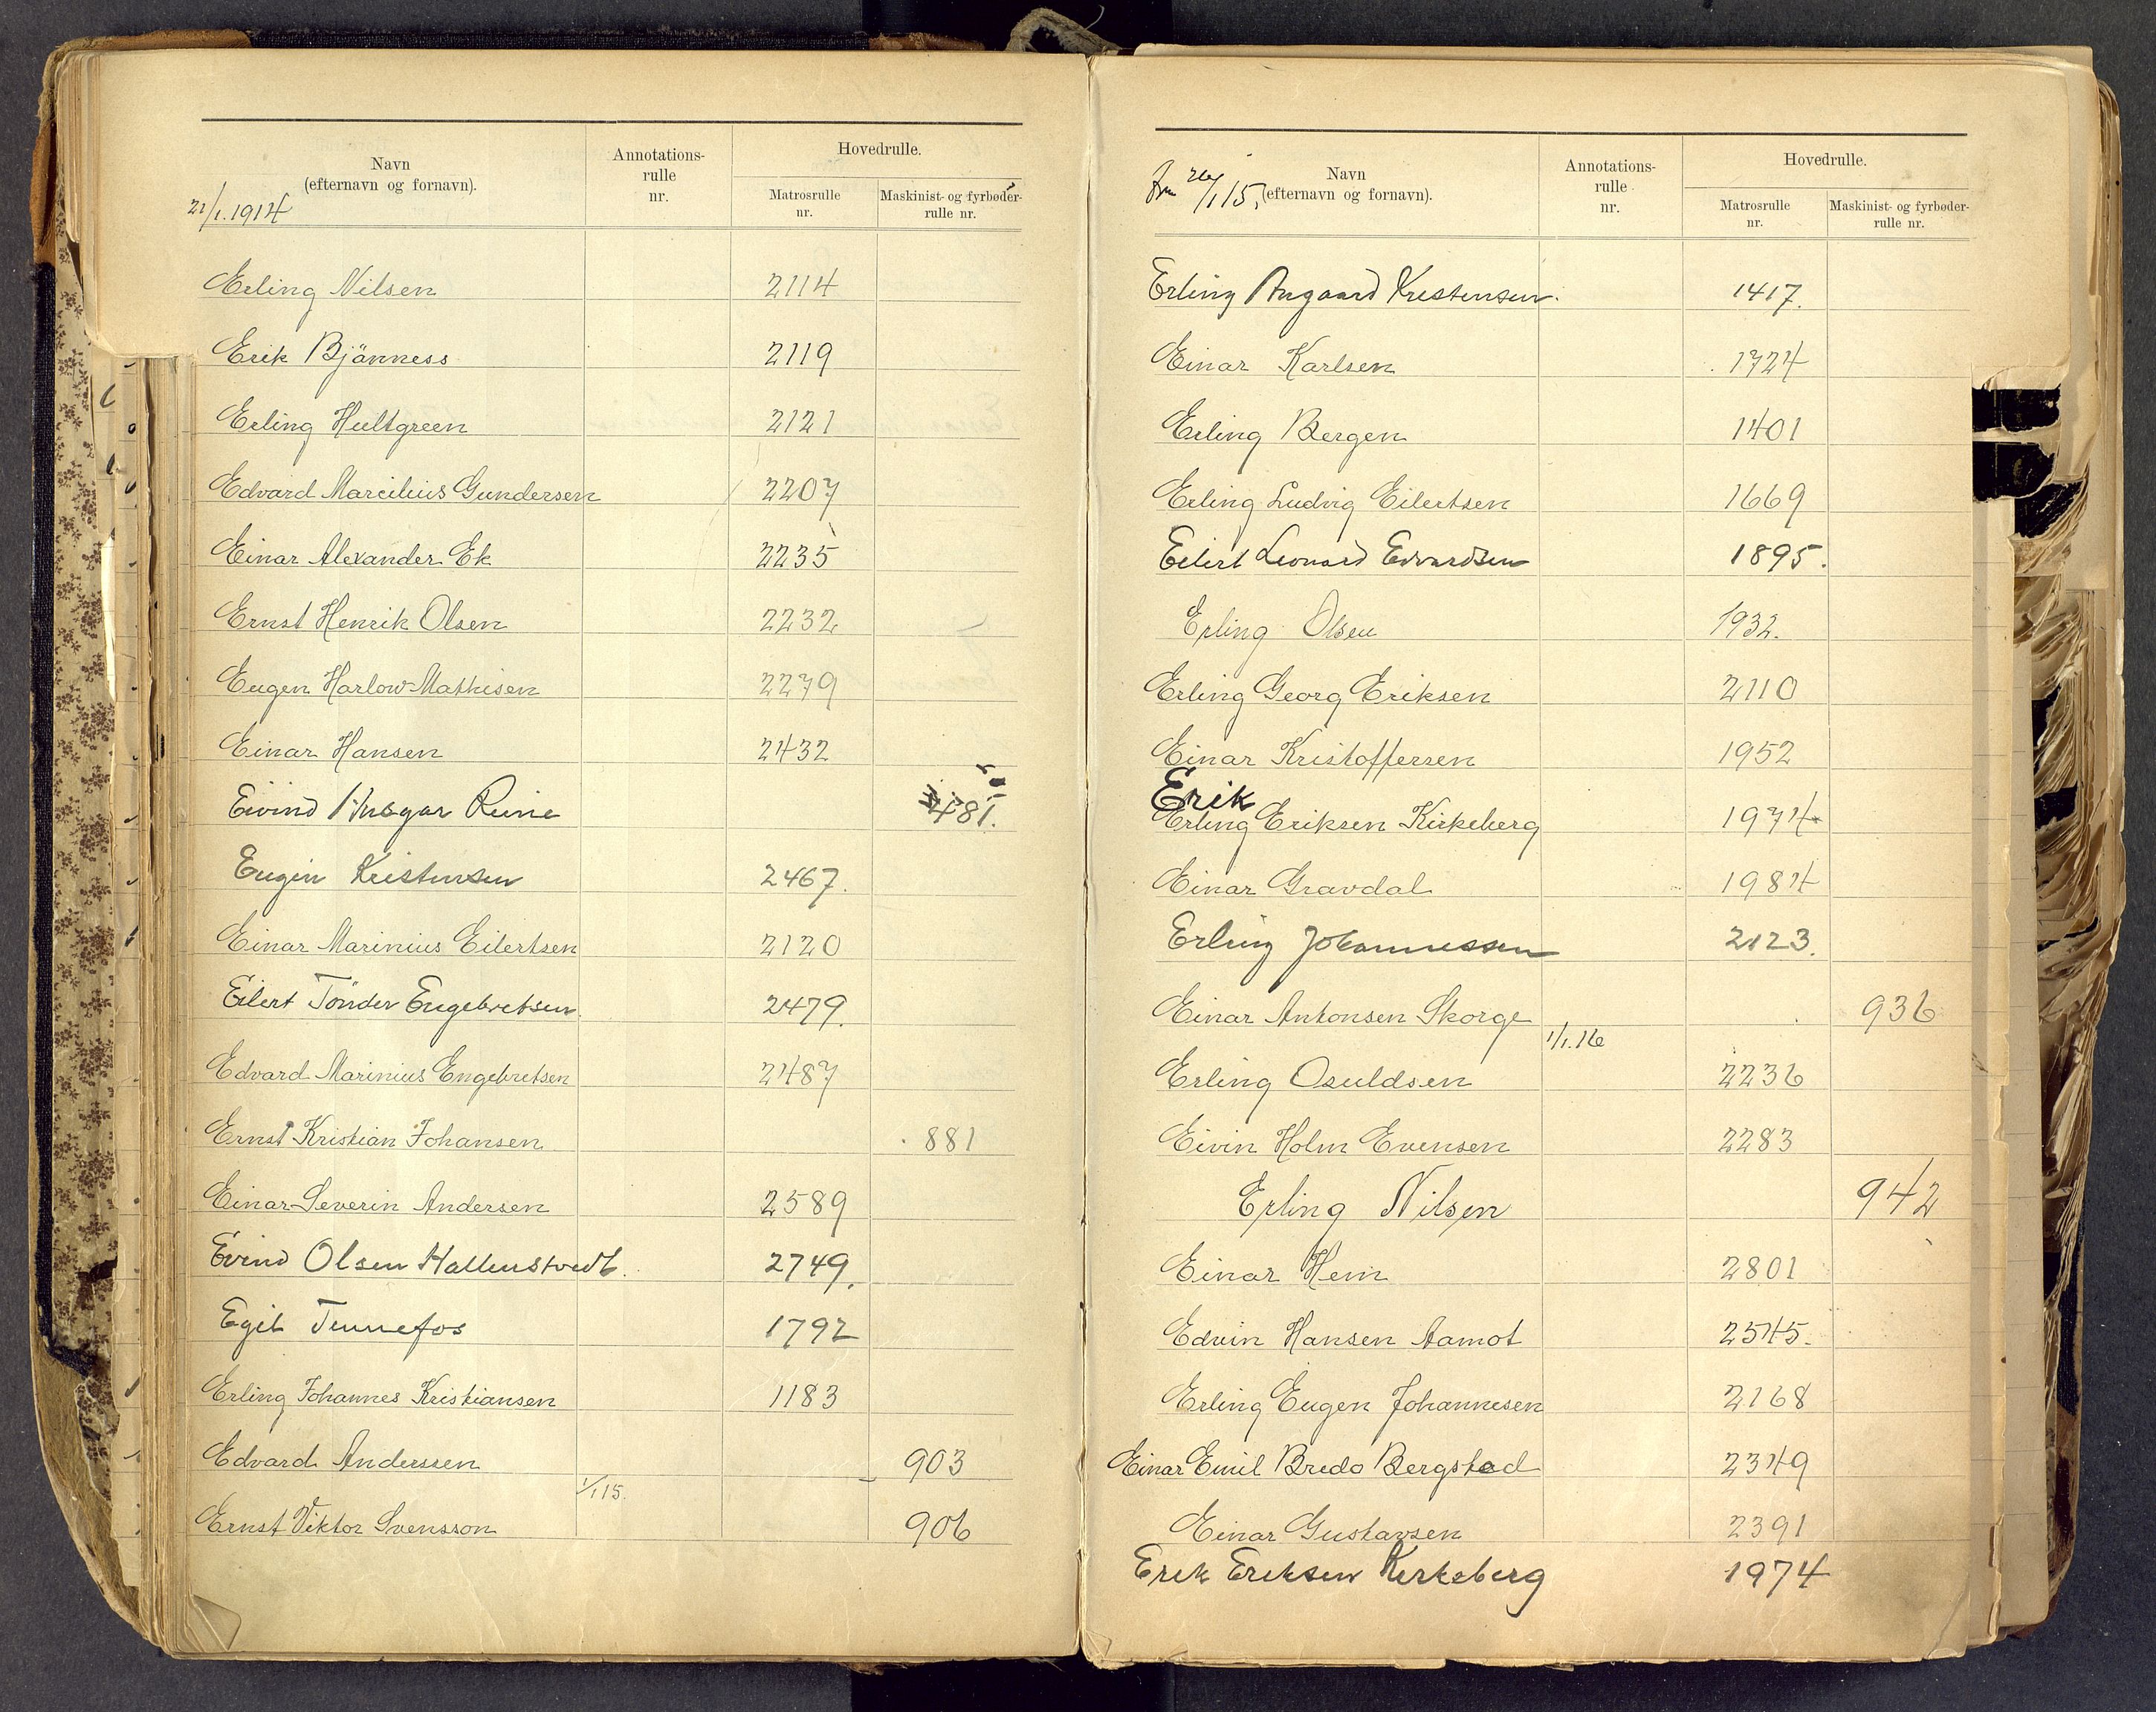 Navn
(efternavn og fornavn).
Annotations-
rulle
nr.
Hovedrulle.
Matrosrulle
nr.
Maskinist- og fyrbøder-
rulle nr.
21/1.1914
Erling Nilsen 2114
Erik Bjänness 2119
Erling Hultgreen 2121
Edvard Marcelius Gundersen 2207
Einar Alexander Ek 2235
Ernst Henrik Olsen 2232
Eugen Harlow-Mathisen 2279
Einar Hansen 2432
Eivind Ansgar Reine 481.
Eugén Kristensen 2467.
Einar Marinius Eilertsen 2120
Eilert Tönder Engebretsen 2479.
Edvard Marinius Engebretsen 2487
Ernst Kristian Johansen 881
Einar Severin Andersen 2589
Evind Olsen Hallenstvedt. 2749.
Egil Tennefos 1792
Erling Johannes Kristiansen 1183
Edvard Anderssen 903
1/1 15.
Ernst Viktor Svensson 906
Navn
(efternavn og fornavn).
Annotations-
rulle
nr.
Hovedrulle.
Matrosrulle
nr.
Maskinist- og fyrbøder-
rulle nr.
26/1 15.
Erling Aagaard Kristensen. 1417.
Einar Karlsen 1724
Erling Bergen 1401
Erling Ludvig Eilertsen 1669
Eilert Leonard Edvardsen 1895.
Erling Olsen 1932.
Erling Georg Eriksen 2110
Einar Kristoffersen 1952
Erik
Erling Eriksen Kirkeberg 1974
Einar Gravdal 1984
Erling Johannessen 2123.
Einar Antonsen Skorge 936
1/1.16
Erling Osuldsen 2236
Eivin Holm Evensen 2283
Erling Nilsen 942
Einar Hem 2801
Edvin Hansen Aamot 2545.
Erling Eugen Johannesen 2168
Einar Emil Bredo Bergstad 2349
Einar Gustavsen 2391
Erik Eriksen Kirkeberg 1974